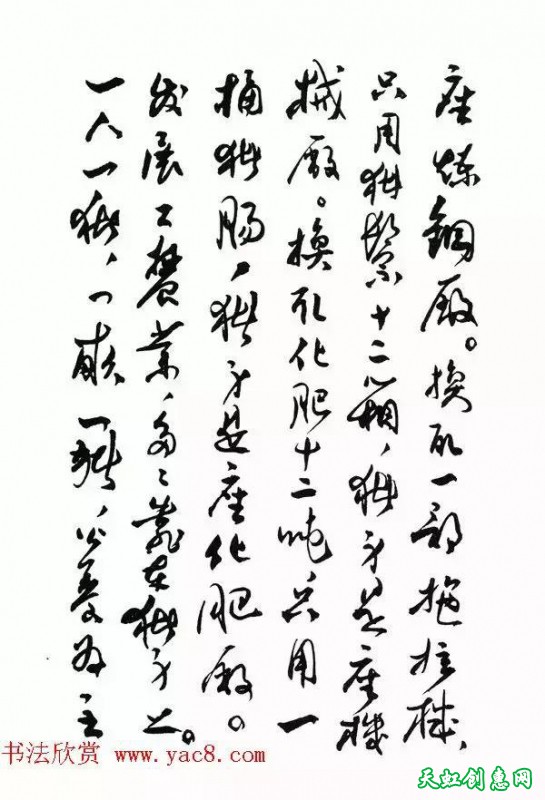 座炼鋼厰。换取一部拖拉机、
只用猪鬃十二箱，猪身是座机
械厰。换取化肥十二吨，只用一
桶猪肠，猪身是座化肥厰。
发展工農業，多々靠在猪身上。
一人一猪，一畝一猪，公養为主
书法欣赏 www.yac8.com
天虹创意网